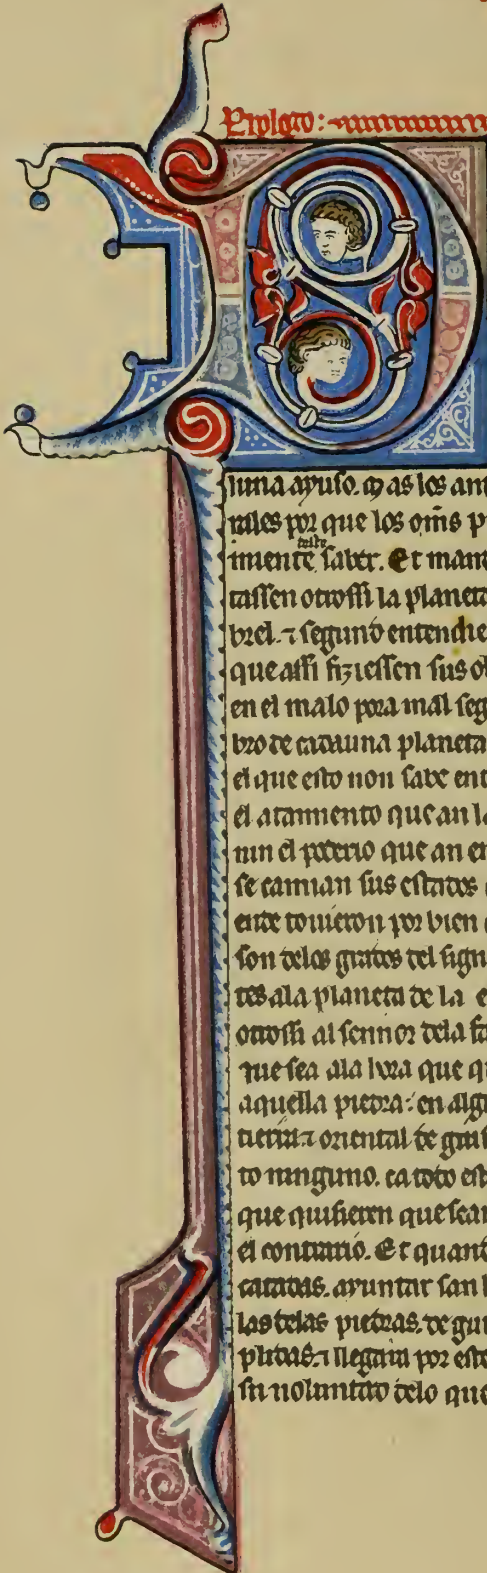 Prologo:
luna ayuso. Mas los ant
rales por que los oms p
miente saber. Et mand
tassen otrossi la planeta
brel. ⁊ segund entendie
que assi fiziessen sus ob
en el malo pora mal seg
bro de cadauna planeta
el que esto non sabe ent
el atannento que an la
nin el poderio que an en
se camian sus estados
ente touieron por bien
son delos grados del sign
tes ala planeta de la e
otrossi al sennor dela fa
que sea ala hora que q
aquella piedra: en alg
tierra ⁊ oriental de guis
to ninguno. ca todo est
que quisieren que sean
el contrario. Et quand
catadas. ayuntar san l
las delas piedras. de gui
plidas. ⁊ llegara por este
su uoluntad delo que